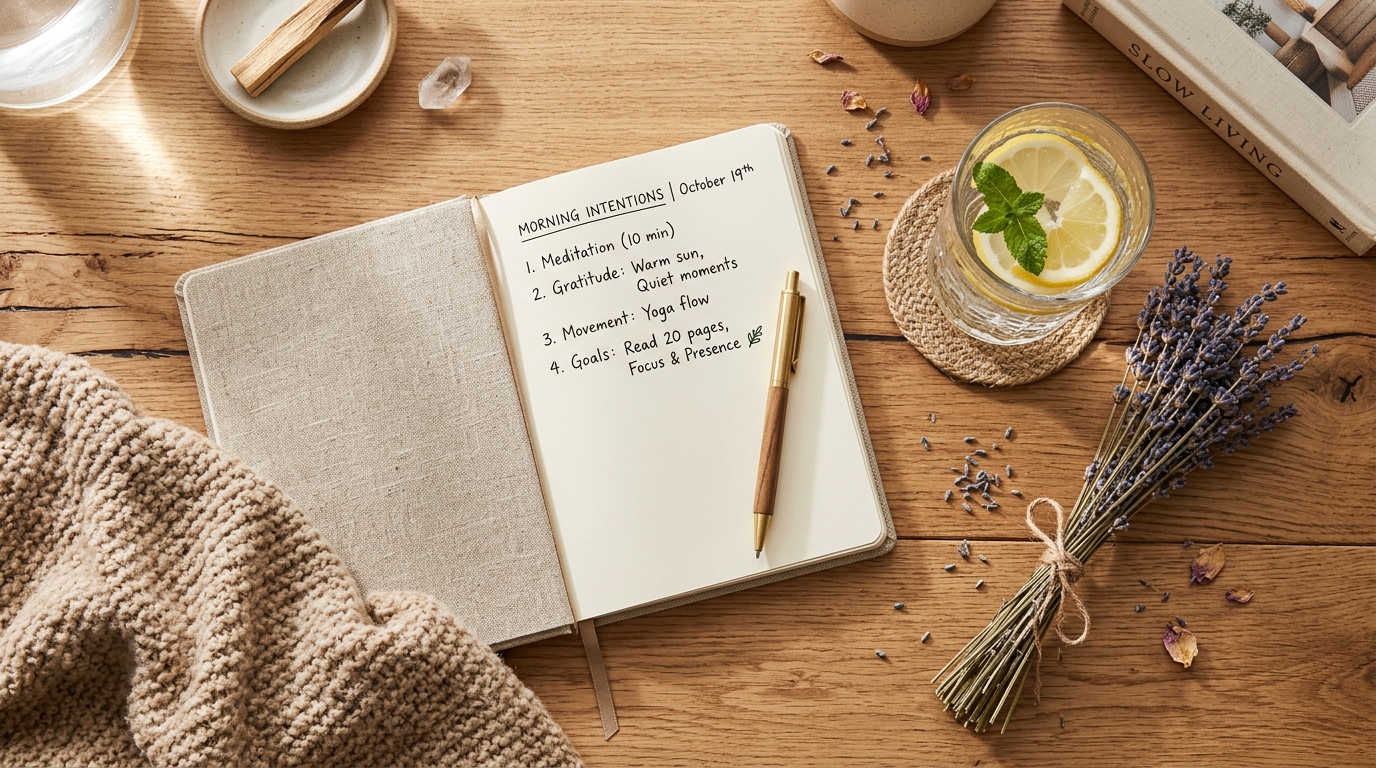 MORNING INTENTIONS | October 19th
1. Meditation (10 min)
2. Gratitude: Warm sun,
Quiet moments
3. Movement: Yoga flow
4. Goals: Read 20 pages,
Focus & Presence
SLOW LIVING